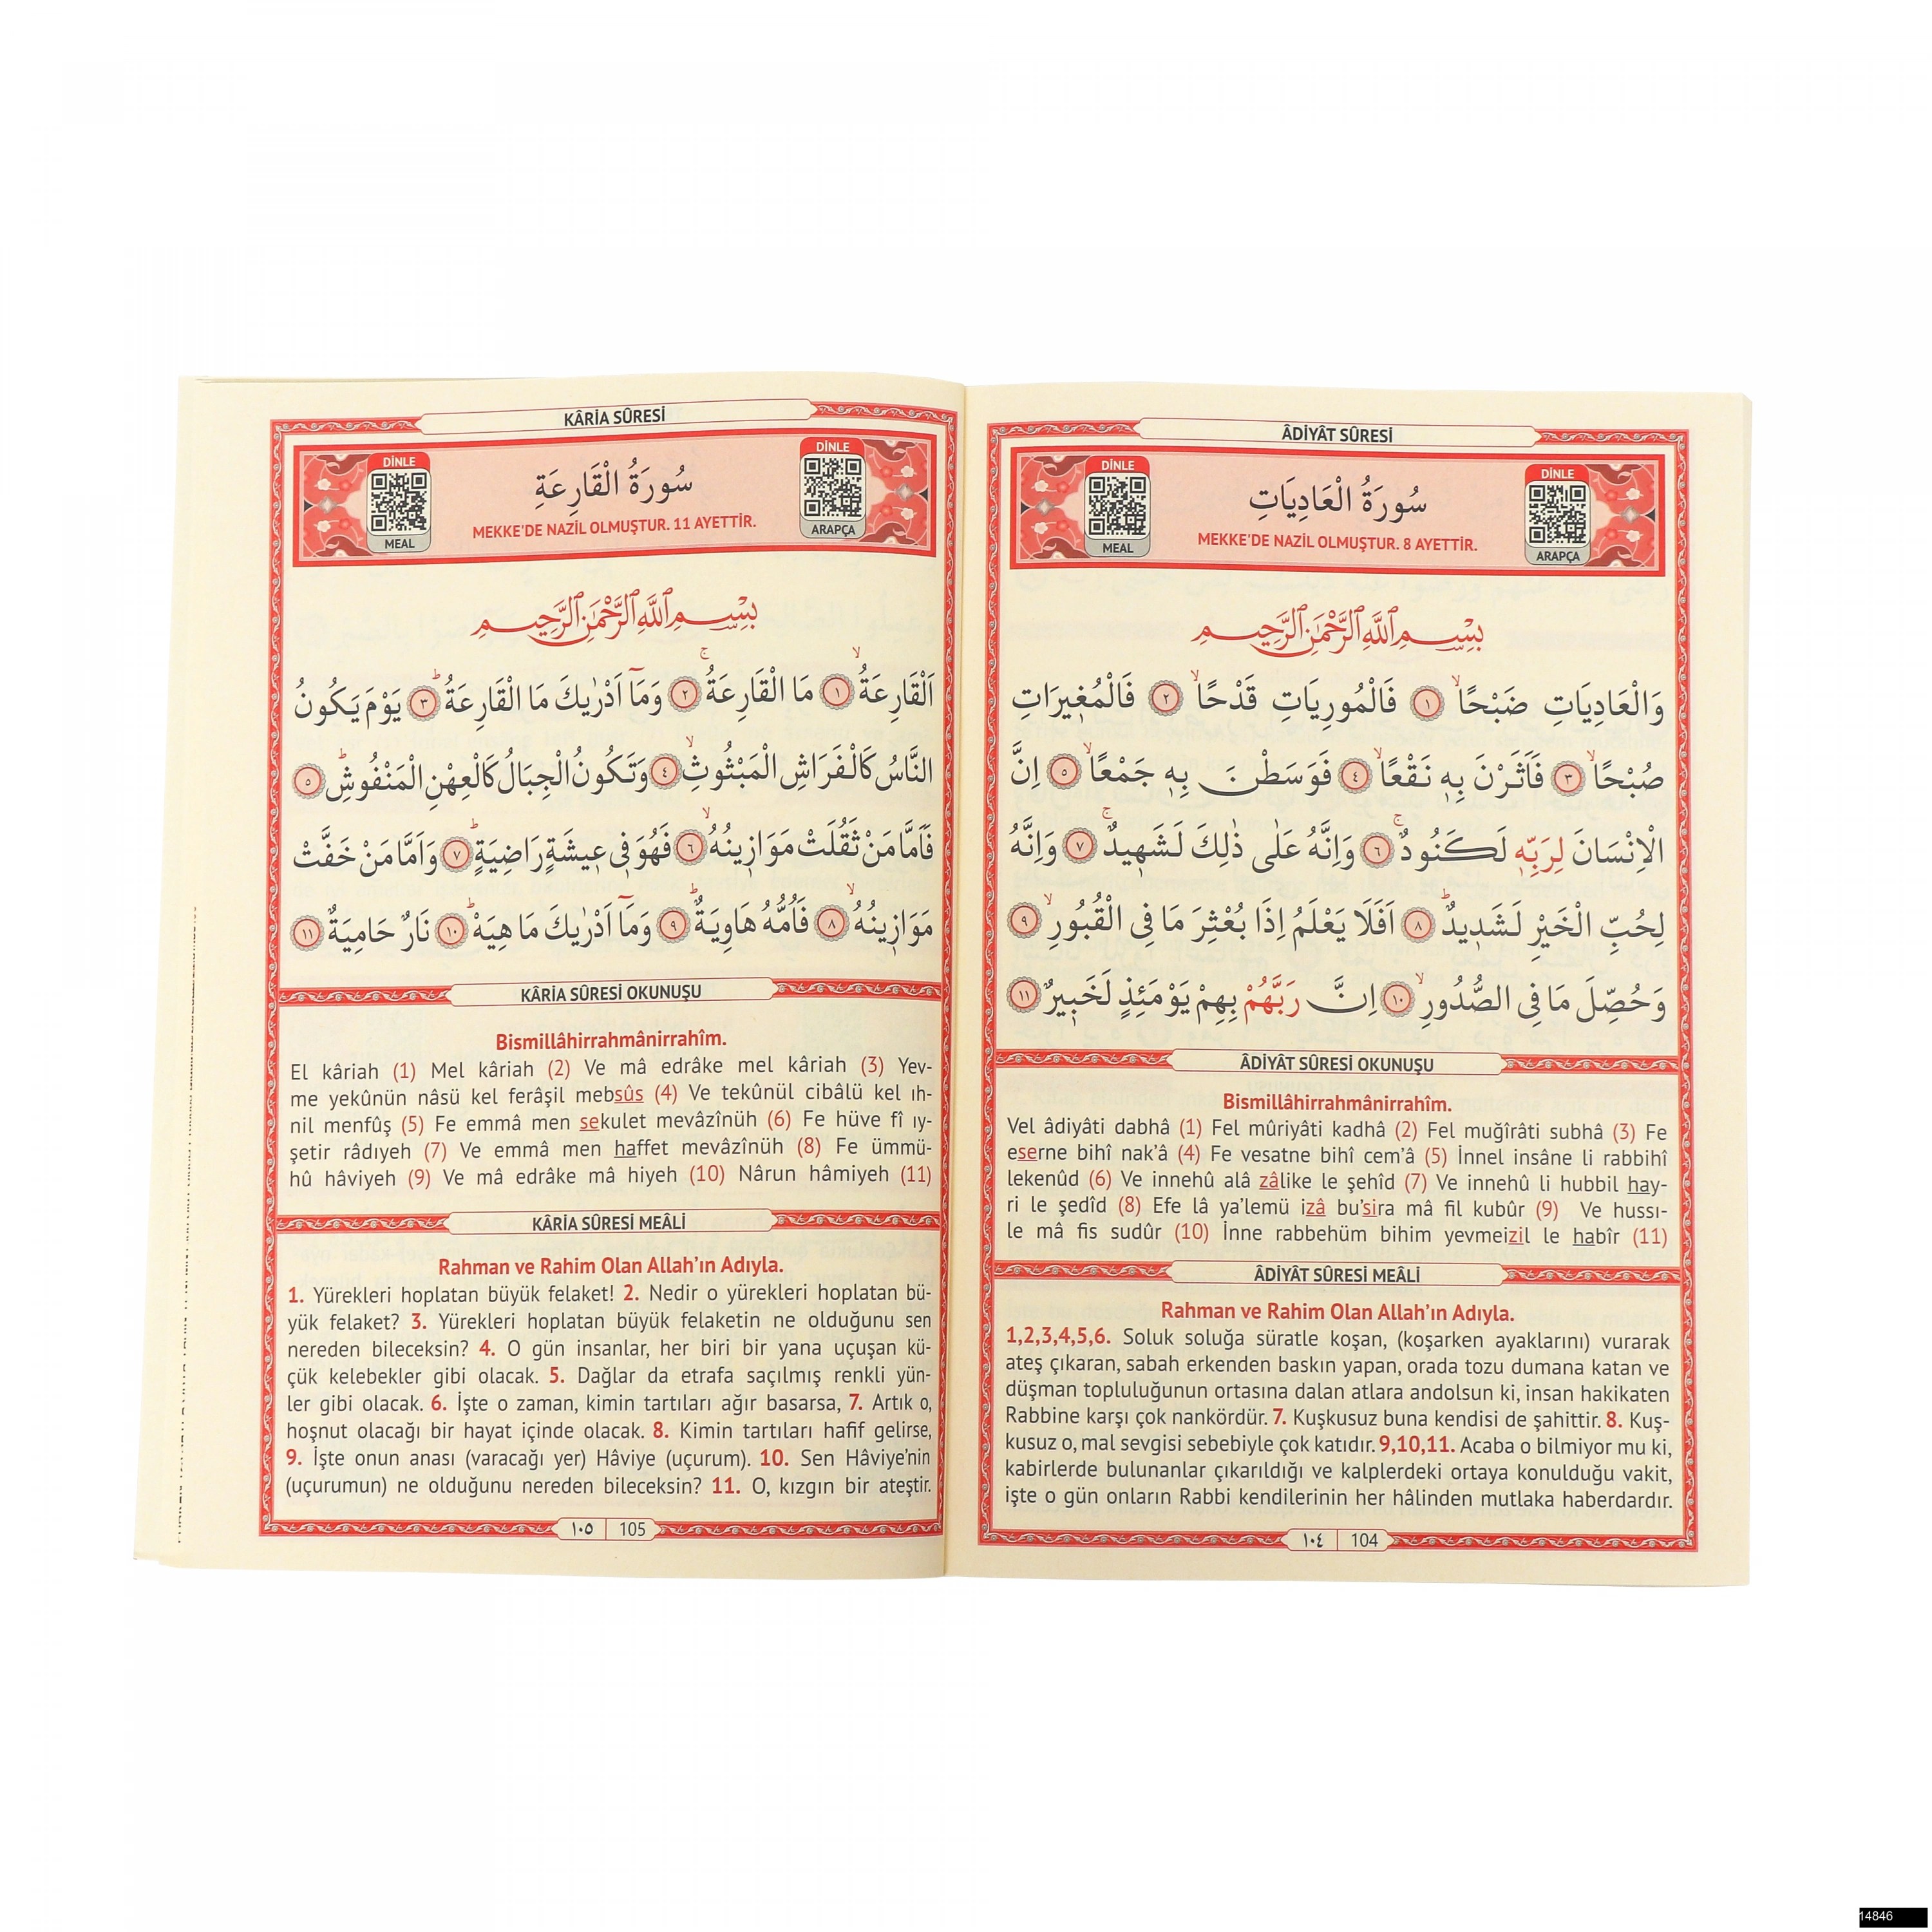 ÂDİYÂT SÛRESİ
DİNLE
MEAL
سُورَةُ الْعَادِيَاتِ
MEKKE'DE NAZİL OLMUŞTUR. 8 AYETTİR.
DİNLE
ARAPÇA
بِسْمِ اللّٰهِ الرَّحْمٰنِ الرَّحِيمِ
وَالْعَادِيَاتِ ضَبْحًاۙ ١ فَالْمُورِيَاتِ قَدْحًاۙ ٢ فَالْمُغ۪يرَاتِ
صُبْحًاۙ ٣ فَاَثَرْنَ بِه۪ نَقْعًاۙ ٤ فَوَسَطْنَ بِه۪ جَمْعًاۙ ٥ اِنَّ
الْاِنْسَانَ لِرَبِّه۪ لَكَنُودٌۚ ٦ وَاِنَّهُ عَلٰى ذٰلِكَ لَشَه۪يدٌۚ ٧ وَاِنَّهُ
لِحُبِّ الْخَيْرِ لَشَد۪يدٌۜ ٨ اَفَلَا يَعْلَمُ اِذَا بُعْثِرَ مَا فِى الْقُبُورِۙ ٩
وَحُصِّلَ مَا فِى الصُّدُورِۙ ١٠ اِنَّ رَبَّهُمْ بِهِمْ يَوْمَئِذٍ لَخَب۪يرٌ ١١
ÂDİYÂT SÛRESİ OKUNUŞU
Bismillâhirrahmânirrahîm.
Vel âdiyâti dabhâ (1) Fel mûriyâti kadhâ (2) Fel muğîrâti subhâ (3) Fe
eserne bihî nak'â (4) Fe vesatne bihî cem'â (5) İnnel insâne li rabbihî
lekenûd (6) Ve innehû alâ zâlike le şehîd (7) Ve innehû li hubbil hay-
ri le şedîd (8) Efe lâ ya'lemü izâ bu'sira mâ fil kubûr (9) Ve hussı-
le mâ fis sudûr (10) İnne rabbehüm bihim yevmeizil le habîr (11)
ÂDİYÂT SÛRESİ MEÂLİ
Rahman ve Rahim Olan Allah'ın Adıyla.
1,2,3,4,5,6. Soluk soluğa süratle koşan, (koşarken ayaklarını) vurarak
ateş çıkaran, sabah erkenden baskın yapan, orada tozu dumana katan ve
düşman topluluğunun ortasına dalan atlara andolsun ki, insan hakikaten
Rabbine karşı çok nankördür. 7. Kuşkusuz buna kendisi de şahittir. 8. Kuş-
kusuz o, mal sevgisi sebebiyle çok katıdır. 9,10,11. Acaba o bilmiyor mu ki,
kabirlerde bulunanlar çıkarıldığı ve kalplerdeki ortaya konulduğu vakit,
işte o gün onların Rabbi kendilerinin her hâlinden mutlaka haberdardır.
١٠٤ 104
KÂRİA SÛRESİ
DİNLE
MEAL
سُورَةُ الْقَارِعَةِ
MEKKE'DE NAZİL OLMUŞTUR. 11 AYETTİR.
DİNLE
ARAPÇA
بِسْمِ اللّٰهِ الرَّحْمٰنِ الرَّحِيمِ
اَلْقَارِعَةُۙ ١ مَا الْقَارِعَةُۚ ٢ وَمَٓا اَدْرٰيكَ مَا الْقَارِعَةُۜ ٣ يَوْمَ يَكُونُ
النَّاسُ كَالْفَرَاشِ الْمَبْثُوثِۙ ٤ وَتَكُونُ الْجِبَالُ كَالْعِهْنِ الْمَنْفُوشِۜ ٥
فَاَمَّا مَنْ ثَقُلَتْ مَوَاز۪ينُهُۙ ٦ فَهُوَ ف۪ى ع۪يشَةٍ رَاضِيَةٍۜ ٧ وَاَمَّا مَنْ خَفَّتْ
مَوَاز۪ينُهُۙ ٨ فَاُمُّهُ هَاوِيَةٌۜ ٩ وَمَٓا اَدْرٰيكَ مَا هِيَهْۜ ١٠ نَارٌ حَامِيَةٌ ١١
KÂRİA SÛRESİ OKUNUŞU
Bismillâhirrahmânirrahîm.
El kâriah (1) Mel kâriah (2) Ve mâ edrâke mel kâriah (3) Yev-
me yekûnün nâsü kel ferâşil mebsûs (4) Ve tekûnül cibâlü kel ıh-
nil menfûş (5) Fe emmâ men sekulet mevâzînüh (6) Fe hüve fî ıy-
şetir râdıyeh (7) Ve emmâ men haffet mevâzînüh (8) Fe ümmü-
hû hâviyeh (9) Ve mâ edrâke mâ hiyeh (10) Nârun hâmiyeh (11)
KÂRİA SÛRESİ MEÂLİ
Rahman ve Rahim Olan Allah'ın Adıyla.
1. Yürekleri hoplatan büyük felaket! 2. Nedir o yürekleri hoplatan bü-
yük felaket? 3. Yürekleri hoplatan büyük felaketin ne olduğunu sen
nereden bileceksin? 4. O gün insanlar, her biri bir yana uçuşan kü-
çük kelebekler gibi olacak. 5. Dağlar da etrafa saçılmış renkli yün-
ler gibi olacak. 6. İşte o zaman, kimin tartıları ağır basarsa, 7. Artık o,
hoşnut olacağı bir hayat içinde olacak. 8. Kimin tartıları hafif gelirse,
9. İşte onun anası (varacağı yer) Hâviye (uçurum). 10. Sen Hâviye'nin
(uçurumun) ne olduğunu nereden bileceksin? 11. O, kızgın bir ateştir.
١٠٥ 105
14846